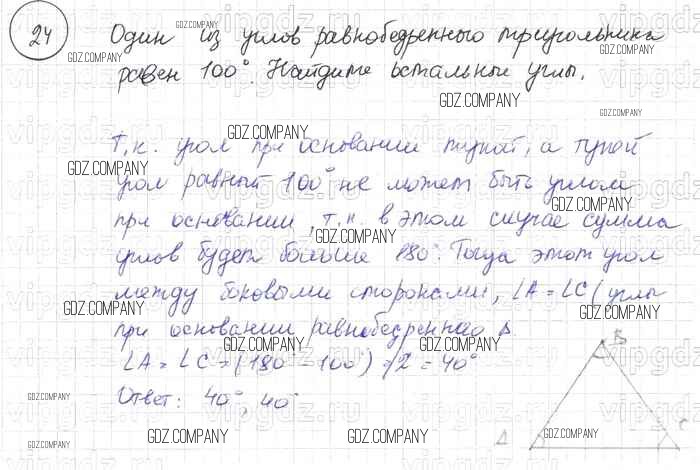 24
Один из углов равнобедренного треугольника
равен 100°. Найдите остальные углы.
Т.к. угол при основании тупой, а тупой
угол равный 100° не может быть углом
при основании, т.к. в этом случае сумма
углов будет больше 180°. Тогда этот угол
между боковыми сторонами, ∠A = ∠C (углы
при основании равнобедренного Δ.
∠A = ∠C = (180° - 100°) : 2 = 40°
Ответ: 40°, 40°
B
GDZ.COMPANY
vipgdz.ru